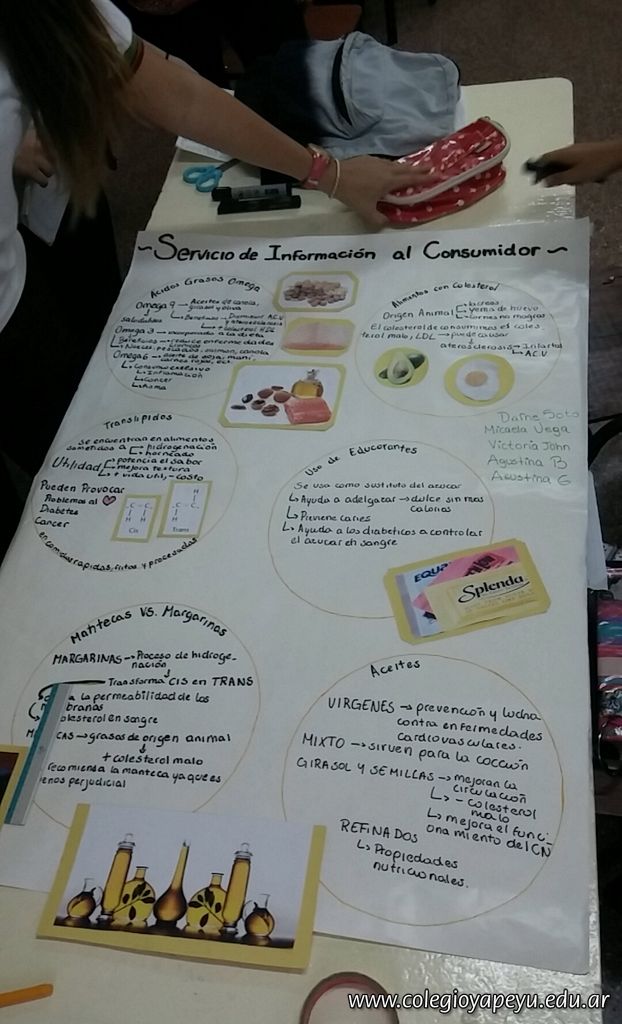 ~ Servicio de Información al Consumidor ~
Ácidos Grasos Omega
Omega 9 → Aceites de canola,
girasol y oliva
saludables
Beneficios → Disminuir A.C.V
y aterosclerosis
+ colesterol HDL
Omega 3 → incorporado a la dieta
Beneficios → reduce enfermedades
Nueces, pescados, salmón, canola
Omega 6 → aceite de soja, maní,
carnes rojas,
Consumo excesivo
↳ Inflamación
↳ Cancer
↳ Asma
Alimentos con Colesterol
Origen Animal → lacteos
yema de huevo
carnes no magras
El colesterol de consumirnos el coles
terol malo, LDL → puede causar
aterosclerosis → Infarto
↳ A.C.V
Daine Soto
Micaela Vega
Victoria John
Agustina B
Agustina G
Translipidos
se encuentran en alimentos
sometidos a → hidrogenación
→ horneado
Utilidad → potencia el sabor
→ mejora textura
↳ + vida util, - costo
Pueden Provocar
Problemas al ♥
Diabetes
Cancer
en comidas rapidas, fritos y procesadas
H
C = C
H H
Cis
H
C = C
H
Trans
Uso de Edulcorantes
Se usa como sustituto del azucar
↳ Ayuda a adelgazar → dulce sin mas
calorias
↳ Previene caries
↳ Ayuda a los diabeticos a controlar
el azucar en sangre
EQUA
Splenda
Mantecas VS. Margarinas
MARGARINAS → Proceso de hidroge-
nación
Transforma CIS en TRANS
a la permeabilidad de las
branas
olesterol en sangre
CAS → grasas de origen animal
+ colesterol malo
recomienda la manteca ya que es
enos perjudicial
Aceites
VIRGENES → prevención y lucha
contra enfermedades
cardiovasculares.
MIXTO → sirven para la cocción
GIRASOL Y SEMILLAS → mejoran la
circulación
↳ - colesterol
malo
↳ mejora el funci-
onamiento del CN
REFINADOS
↳ Propiedades
nutricionales.
www.colegioyapeyu.edu.ar